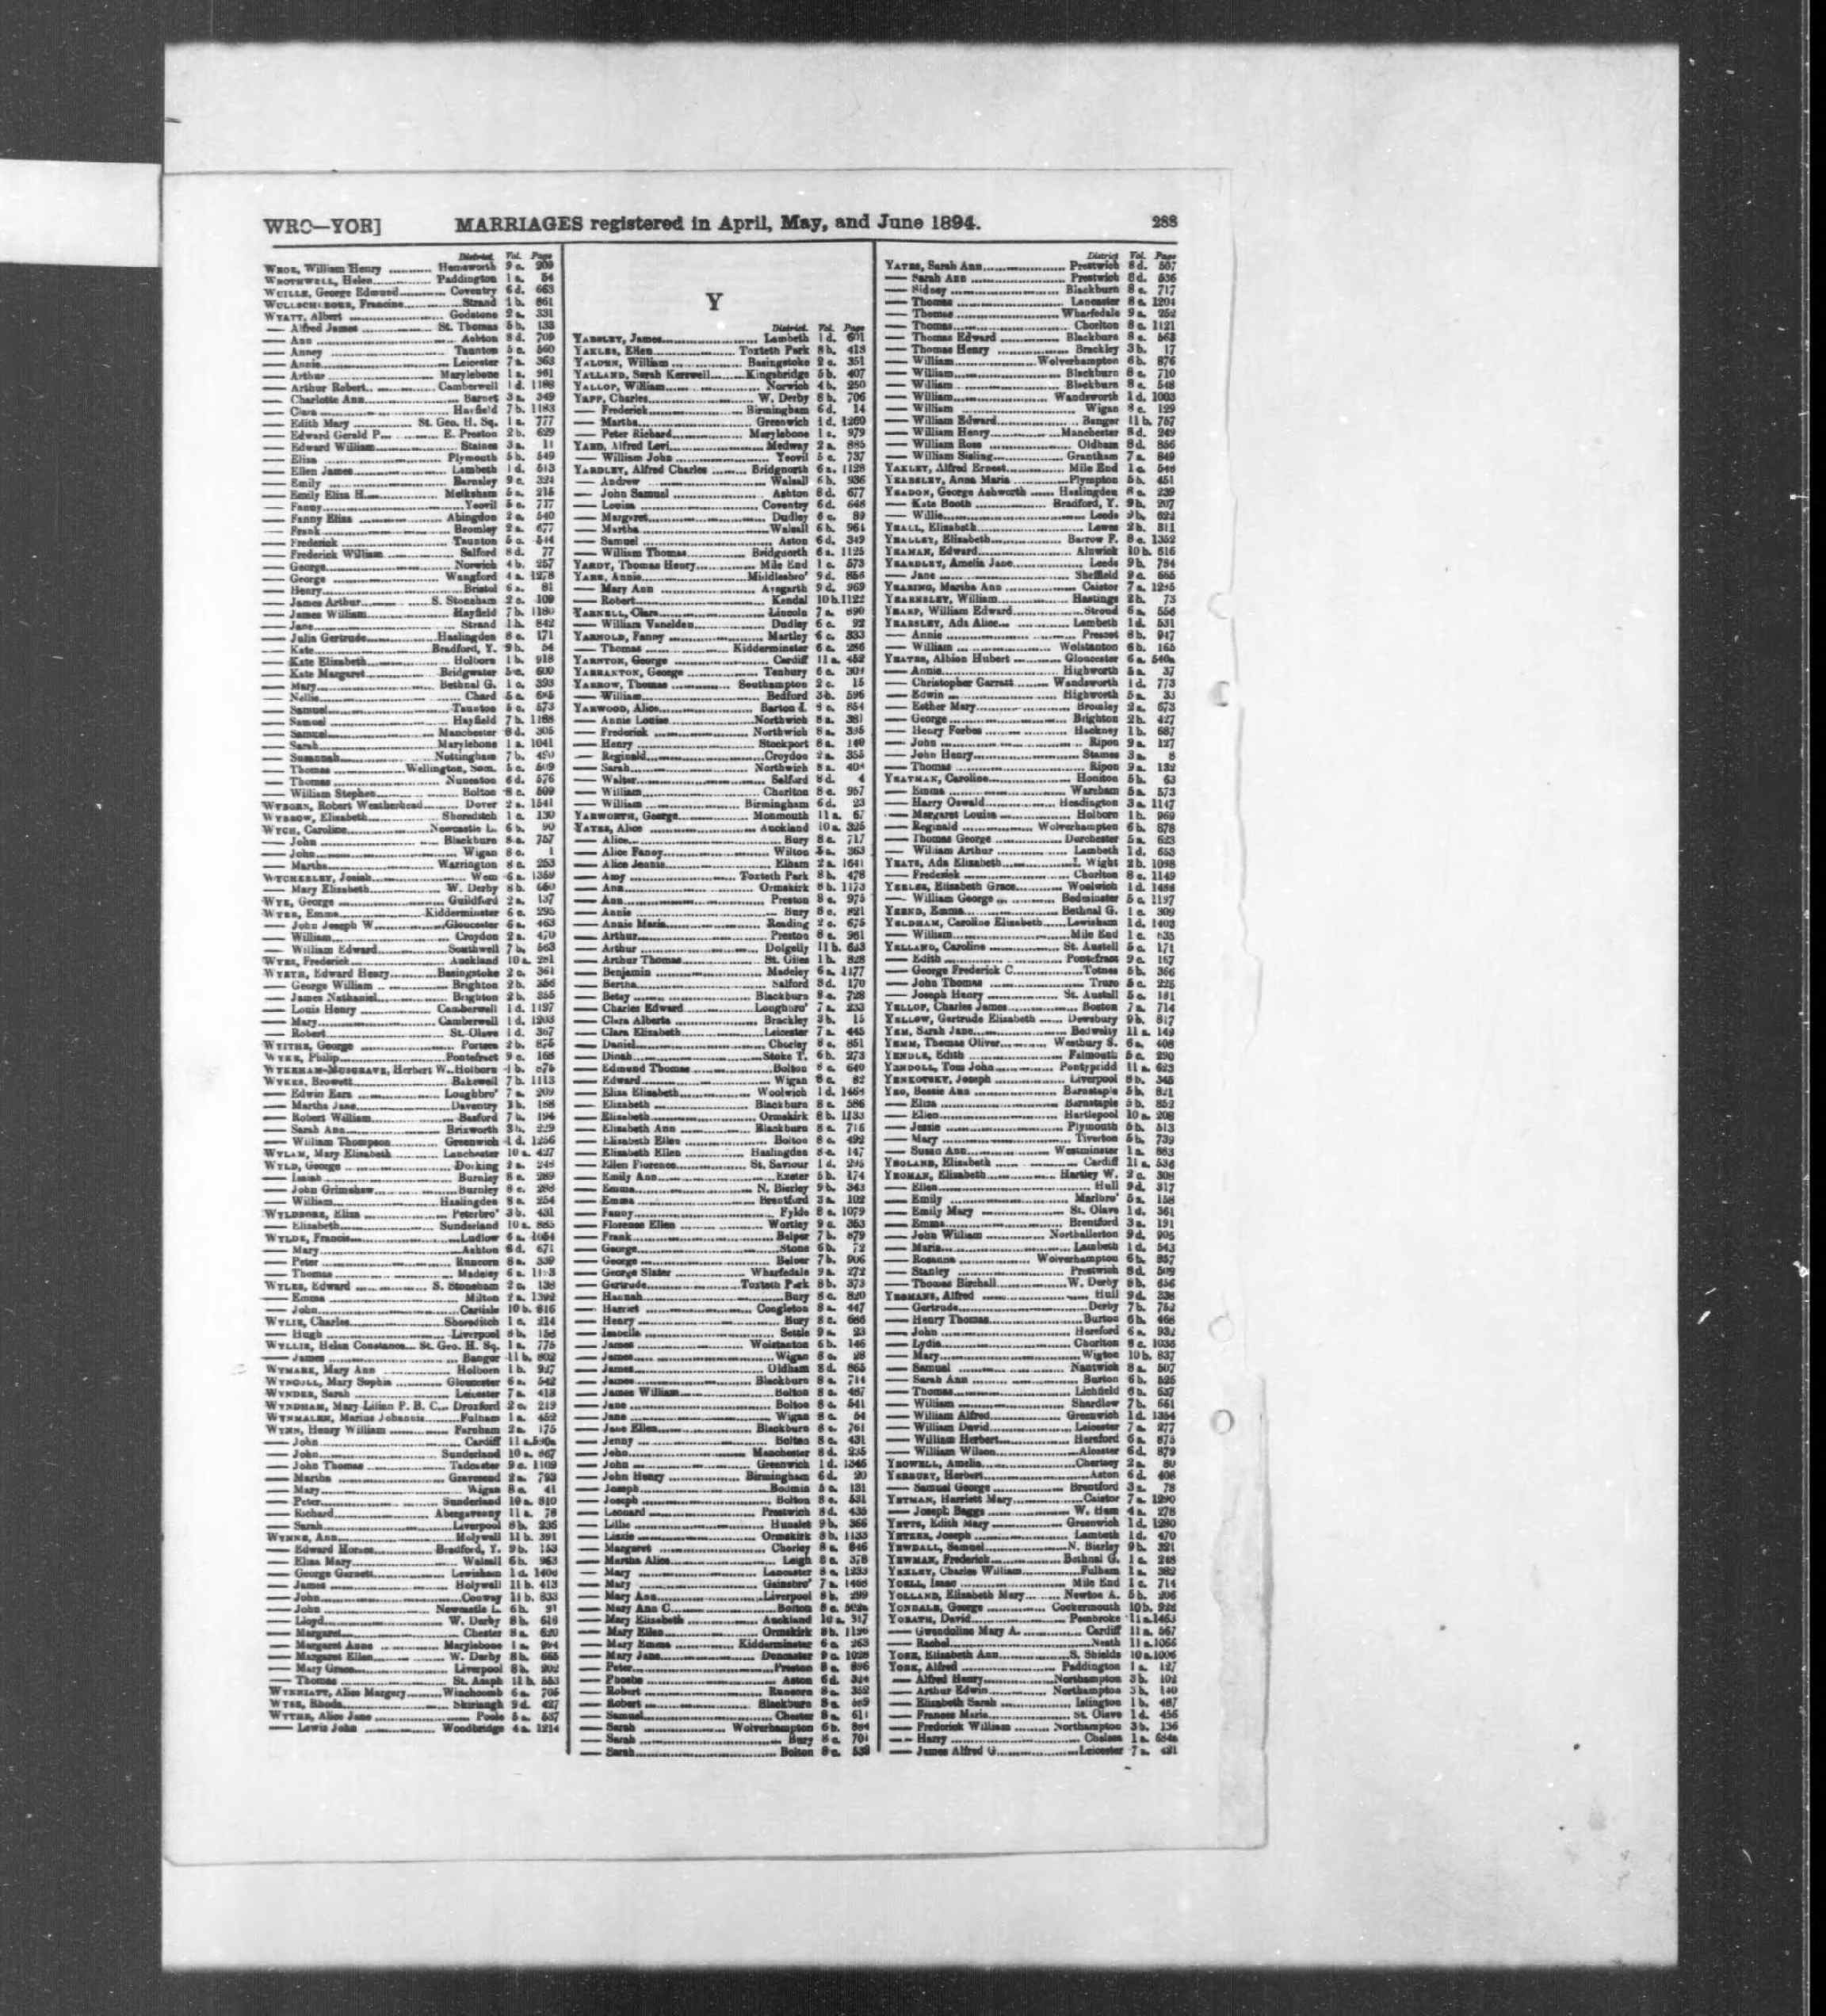 WRO—YOR] MARRIAGES registered in April, May, and June 1894. 288
District. Vol. Page
WROE, William Henry ... Hemsworth 9 c. 209
WROTHWELL, Helen ... Paddington 1 a. 54
WUILLE, George Edmund ... Coventry 6 d. 663
Francine ... Strand 1 b. 861
WYATT, Albert ... Godstone 2 a. 331
— Alfred James ... St. Thomas 5 b. 133
— Ann ... Ashton 8 d. 709
— Anney ... Taunton 5 c. 560
— Annie ... Leicester 7 a. 363
— Arthur ... Marylebone 1 a. 961
— Arthur Robert ... Camberwell 1 d. 1188
— Charlotte Ann ... Barnet 3 a. 349
— Clara ... Hayfield 7 b. 1183
— Edith Mary ... St. Geo. H. Sq. 1 a. 777
— Edward Gerald P. ... E. Preston 2 b. 629
— Edward William ... Staines 3 a. 11
— Eliza ... Plymouth 5 b. 549
— Ellen James ... Lambeth 1 d. 513
— Emily ... Barnsley 9 c. 324
— Emily Eliza H. ... Melksham 5 a. 215
— Fanny ... Yeovil 5 c. 717
— Fanny Eliza ... Abingdon 2 c. 540
— Frank ... Bromley 2 a. 677
— Frederick ... Taunton 5 c. 544
— Frederick William ... Salford 8 d. 77
— George ... Norwich 4 b. 257
— George ... Wangford 4 a. 1278
— Henry ... Bristol 6 a. 81
— James Arthur ... S. Stoneham 2 c. 109
— James William ... Hayfield 7 b. 1180
— Jane ... Strand 1 b. 842
— Julia Gertrude ... Haslingden 8 e. 171
— Kate ... Bradford, Y. 9 b. 54
— Kate Elizabeth ... Holborn 1 b. 918
— Kate Margaret ... Bridgwater 5 c. 600
— Mary ... Bethnal G. 1 c. 393
— Nellie ... Chard 5 c. 685
— Samuel ... Taunton 5 c. 573
— Samuel ... Hayfield 7 b. 1188
— Samuel ... Manchester 8 d. 305
— Sarah ... Marylebone 1 a. 1041
— Susannah ... Nottingham 7 b. 450
— Thomas ... Wellington, Som. 5 c. 509
— Thomas ... Nuneaton 6 d. 576
— William Stephen ... Bolton 8 c. 509
WYBORN, Robert Weatherhead ... Dover 2 a. 1541
WYBROW, Elizabeth ... Shoreditch 1 c. 130
WYCH, Caroline ... Newcastle L. 6 b. 90
— John ... Blackburn 8 e. 757
— John ... Wigan 8 c. 1
— Martha ... Warrington 8 c. 253
WYCHERLEY, Josiah ... Wem 6 a. 1359
— Mary Elizabeth ... W. Derby 8 b. 660
WYE, George ... Guildford 2 a. 137
WYER, Emma ... Kidderminster 6 c. 295
— John Joseph W. ... Gloucester 6 a. 463
— William ... Croydon 2 a. 470
— William Edward ... Southwell 7 b. 563
WYES, Frederick ... Auckland 10 a. 281
WYETH, Edward Henry ... Basingstoke 2 c. 361
— George William ... Brighton 2 b. 356
— James Nathaniel ... Brighton 2 b. 355
— Louis Henry ... Camberwell 1 d. 1197
— Mary ... Camberwell 1 d. 1203
— Robert ... St. Olave 1 d. 367
George ... Portsea 2 b. 875
WYKE, Philip ... Pontefract 9 c. 168
WYKEHAM-MUSGRAVE, Herbert W. Holborn 1 b. 875
WYKES, Browett ... Bakewell 7 b. 1113
— Edwin Ezra ... Loughbro' 7 a. 209
— Martha Jane ... Daventry 3 b. 168
— Robert William ... Basford 7 b. 194
— Sarah Ann ... Brixworth 3 b. 229
— William Thompson ... Greenwich 1 d. 1256
WYLAM, Mary Elizabeth ... Lanchester 10 a. 427
WYLD, George ... Dorking 2 a. 248
— Isaiah ... Burnley 8 e. 289
— John Grimshaw ... Burnley 8 e. 288
— William ... Haslingden 8 e. 254
WYLDBORE, Eliza ... Peterbro' 3 b. 431
— Elizabeth ... Sunderland 10 a. 885
WYLDE, Francis ... Ludlow 6 a. 1054
— Mary ... Ashton 8 d. 671
— Peter ... Runcorn 8 a. 339
— Thomas ... Madeley 6 a.
WYLES, Edward ... S. Stoneham 2 c. 138
— Emma ... Milton 2 a. 1392
— John ... Carlisle 10 b. 816
WYLIE, Charles ... Shoreditch 1 c. 214
— Hugh ... Liverpool 8 b. 158
WYLLIE, Helen Constance ... St. Geo. H. Sq. 1 a. 775
— James ... Bangor 11 b. 802
WYMARK, Mary Ann ... Holborn 1 b. 927
Mary Sophia ... Gloucester 6 a. 542
WYNDER, Sarah ... Leicester 7 a. 413
WYNDHAM, Mary Lilian P. B. C. ... Droxford 2 c. 219
WYNMALEN, Marius Johannis ... Fulham 1 a. 452
WYNN, Henry William ... Farnham 2 a. 175
— John ... Cardiff 11 a. 590a
— John ... Sunderland 10 a. 867
— John Thomas ... Tadcaster 9 c. 1109
— Martha ... Gravesend 2 a. 793
— Mary ... Wigan 8 c. 41
— Peter ... Sunderland 10 a. 810
— Richard ... Abergavenny 11 a. 78
— Sarah ... Liverpool 8 b. 236
WYNNE, Ann ... Holywell 11 b. 391
— Edward Horace ... Bradford, Y. 9 b. 153
— Eliza Mary ... Walsall 6 b. 963
— George Garnett ... Lewisham 1 d. 1406
— James ... Holywell 11 b. 413
— John ... Conway 11 b. 833
— John ... Newcastle L. 6 b. 91
— Lloyd ... W. Derby 8 b. 616
— Margaret ... Chester 8 a. 620
— Margaret Anne ... Marylebone 1 a. 994
— Margaret Ellen ... W. Derby 8 b. 665
— Mary Grace ... Liverpool 8 b. 202
— Thomas ... St. Asaph 11 b. 553
WYNNIATT, Alice Margery ... Winchcomb 6 a. 705
WYER, Rhoda ... Skirlaugh 9 d. 427
WYTHE, Alice Jane ... Poole 5 a. 537
— Lewis John ... Woodbridge 4 a. 1214
Y
District. Vol. Page
YABSLEY, James ... Lambeth 1 d. 601
YAKLES, Ellen ... Toxteth Park 8 b. 418
YALDEN, William ... Basingstoke 2 c. 351
YALLAND, Sarah Kerswell ... Kingsbridge 5 b. 407
YALLOP, William ... Norwich 4 b. 250
YAPP, Charles ... W. Derby 8 b. 706
— Frederick ... Birmingham 6 d. 14
— Martha ... Greenwich 1 d. 1260
— Peter Richard ... Marylebone 1 a. 979
YARD, Alfred Levi ... Medway 2 a. 885
— William John ... Yeovil 5 c. 737
YARDLEY, Alfred Charles ... Bridgnorth 6 a. 1128
— Andrew ... Walsall 6 b. 936
— John Samuel ... Ashton 8 d. 677
— Louisa ... Coventry 6 d. 648
— Margaret ... Dudley 6 c. 89
— Martha ... Walsall 6 b. 964
— Samuel ... Aston 6 d. 349
— William Thomas ... Bridgnorth 6 a. 1125
YARDY, Thomas Henry ... Mile End 1 c. 573
YARE, Annie ... Middlesbro' 9 d. 856
— Mary Ann ... Aysgarth 9 d. 969
— Robert ... Kendal 10 b. 1122
YARNELL, Clara ... Lincoln 7 a. 890
— William Vanelden ... Dudley 6 c. 92
YARNOLD, Fanny ... Martley 6 c. 333
— Thomas ... Kidderminster 6 c. 286
YARNTON, George ... Cardiff 11 a. 452
YARRANTON, George ... Tenbury 6 c. 301
YARROW, Thomas ... Southampton 2 c. 15
— William ... Bedford 3 b. 596
YARWOOD, Alice ... Barton I. 8 c. 854
— Annie Louise ... Northwich 8 a. 381
— Frederick ... Northwich 8 a. 395
— Henry ... Stockport 8 a. 140
— Reginald ... Croydon 2 a. 355
— Sarah ... Northwich 8 a. 404
— Walter ... Salford 8 d. 4
— William ... Chorlton 8 c. 957
— William ... Birmingham 6 d. 23
YARWORTH, George ... Monmouth 11 a. 67
YATES, Alice ... Auckland 10 a. 325
— Alice ... Bury 8 c. 717
— Alice Fanny ... Wilton 5 a. 363
— Alice Jennie ... Elham 2 a. 1641
— Amy ... Toxteth Park 8 b. 478
— Ann ... Ormskirk 8 b. 1173
— Ann ... Preston 8 e. 975
— Annie ... Bury 8 c. 821
— Annie Maria ... Reading 2 c. 675
— Arthur ... Preston 8 e. 961
— Arthur ... Dolgelly 11 b. 633
— Arthur Thomas ... St. Giles 1 b. 828
— Benjamin ... Madeley 6 a. 1177
— Bertha ... Salford 8 d. 170
— Betsy ... Blackburn 8 e. 728
— Charles Edward ... Loughbro' 7 a. 233
— Clara Alberta ... Brackley 3 b. 15
— Clara Elizabeth ... Leicester 7 a. 445
— Daniel ... Chorley 8 e. 851
— Dinah ... Stoke T. 6 b. 273
— Edmund Thomas ... Bolton 8 c. 640
— Edward ... Wigan 8 c. 82
— Eliza Elizabeth ... Woolwich 1 d. 1464
— Elizabeth ... Blackburn 8 e. 586
— Elizabeth ... Ormskirk 8 b. 1133
— Elizabeth Ann ... Blackburn 8 e. 716
— Elizabeth Ellen ... Bolton 8 c. 492
— Elizabeth Ellen ... Haslingden 8 e. 147
— Ellen Florence ... St. Saviour 1 d. 295
— Emily Ann ... Exeter 5 b. 174
— Emma ... N. Bierley 9 b. 343
— Emma ... Brentford 3 a. 102
— Fanny ... Fylde 8 e. 1079
— Florence Ellen ... Wortley 9 c. 353
— Frank ... Belper 7 b. 879
— George ... Stone 6 b. 72
— George ... Belper 7 b. 906
— George Slater ... Wharfedale 9 a. 272
— Gertrude ... Toxteth Park 8 b. 373
— Hannah ... Bury 8 c. 820
— Harriet ... Congleton 8 a. 447
— Henry ... Bury 8 c. 686
— Isabella ... Settle 9 a. 23
— James ... Wolstanton 6 b. 146
— James ... Wigan 8 c. 28
— James ... Oldham 8 d. 865
— James ... Blackburn 8 e. 714
— James William ... Bolton 8 c. 487
— Jane ... Bolton 8 c. 541
— Jane ... Wigan 8 c. 54
— Jane Ellen ... Blackburn 8 e. 761
— Jenny ... Bolton 8 c. 431
— John ... Manchester 8 d. 235
— John ... Greenwich 1 d. 1346
— John Henry ... Birmingham 6 d. 20
— Joseph ... Bodmin 5 c. 131
— Joseph ... Bolton 8 c. 531
— Leonard ... Prestwich 8 d. 435
— Lillie ... Hunslet 9 b. 366
— Lizzie ... Ormskirk 8 b. 1133
— Margaret ... Chorley 8 e. 846
— Martha Alice ... Leigh 8 c. 378
— Mary ... Lancaster 8 e. 1233
— Mary ... Gainsbro' 7 a. 1468
— Mary Ann ... Liverpool 8 b. 299
— Mary Ann C. ... Bolton 8 c. 502a
— Mary Elizabeth ... Auckland 10 a. 317
— Mary Ellen ... Ormskirk 8 b. 1126
— Mary Emma ... Kidderminster 6 c. 263
— Mary Jane ... Doncaster 9 c. 1028
— Peter ... Preston 8 e. 896
— Phoebe ... Aston 6 d. 324
— Robert ... Runcorn 8 a. 352
— Robert ... Blackburn 8 e. 569
— Samuel ... Chester 8 a. 611
— Sarah ... Wolverhampton 6 b. 884
— Sarah ... Bury 8 c. 701
— Sarah ... Bolton 8 c. 539
District Vol. Page
YATES, Sarah Ann ... Prestwich 8 d. 507
— Sarah Ann ... Prestwich 8 d. 536
— Sidney ... Blackburn 8 e. 717
— Thomas ... Lancaster 8 e. 1204
— Thomas ... Wharfedale 9 a. 252
— Thomas ... Chorlton 8 c. 1121
— Thomas Edward ... Blackburn 8 e. 563
— Thomas Henry ... Brackley 3 b. 17
— William ... Wolverhampton 6 b. 876
— William ... Blackburn 8 e. 710
— William ... Blackburn 8 e. 548
— William ... Wandsworth 1 d. 1003
— William ... Wigan 8 c. 129
— William Edward ... Bangor 11 b. 757
— William Henry ... Manchester 8 d. 249
— William Ross ... Oldham 8 d. 856
— William Sisling ... Grantham 7 a. 849
YAXLEY, Alfred Ernest ... Mile End 1 c. 546
YEABSLEY, Anna Maria ... Plympton 5 b. 451
YEADON, George Ashworth ... Haslingden 8 e. 239
— Kate Booth ... Bradford, Y. 9 b. 207
— Willie ... Leeds 9 b. 622
YEALL, Elizabeth ... Lewes 2 b. 311
YEALLEY, Elizabeth ... Barrow F. 8 e. 1352
YEAMAN, Edward ... Alnwick 10 b. 616
YEARDLEY, Amelia Jane ... Leeds 9 b. 784
— Jane ... Sheffield 9 c. 665
YEARING, Martha Ann ... Caistor 7 a. 1245
YEARNSLEY, William ... Hastings 2 b. 73
YEARP, William Edward ... Stroud 6 a. 556
YEARSLEY, Ada Alice ... Lambeth 1 d. 531
— Annie ... Prescot 8 b. 947
— William ... Wolstanton 6 b. 165
YEATES, Albion Hubert ... Gloucester 6 a. 540a
— Annie ... Highworth 5 a. 37
— Christopher Garratt ... Wandsworth 1 d. 773
— Edwin ... Highworth 5 a. 33
— Esther Mary ... Bromley 2 a. 673
— George ... Brighton 2 b. 427
— Henry Forbes ... Hackney 1 b. 687
— John ... Ripon 9 a. 127
— John Henry ... Staines 3 a. 8
— Thomas ... Ripon 9 a. 132
YEATMAN, Caroline ... Honiton 5 b. 63
— Emma ... Wareham 5 a. 573
— Harry Oswald ... Headington 3 a. 1147
— Margaret Louisa ... Holborn 1 b. 969
— Reginald ... Wolverhampton 6 b. 878
— Thomas George ... Dorchester 5 a. 623
— William Arthur ... Lambeth 1 d. 653
YEATS, Ada Elizabeth ... I. Wight 2 b. 1098
— Frederick ... Chorlton 8 c. 1149
YEELES, Elizabeth Grace ... Woolwich 1 d. 1488
— William George ... Bedminster 5 c. 1197
Emma ... Bethnal G. 1 c. 309
YELDHAM, Caroline Elizabeth ... Lewisham 1 d. 1403
— William ... Mile End 1 c. 635
YELLAND, Caroline ... St. Austell 5 c. 171
— Edith ... Pontefract 9 c. 167
— George Frederick C. ... Totnes 5 b. 366
— John Thomas ... Truro 5 c. 225
— Joseph Henry ... St. Austell 5 c. 181
YELLOP, Charles James ... Boston 7 a. 714
YELLOW, Gertrude Elizabeth ... Dewsbury 9 b. 817
YEM, Sarah Jane ... Bedwelty 11 a. 149
YEMM, Thomas Oliver ... Westbury S. 6 a. 408
YENDLE, Edith ... Falmouth 5 c. 290
YENDOLL, Tom John ... Pontypridd 11 a. 623
YENKOFSKY, Joseph ... Liverpool 8 b. 345
YEO, Bessie Ann ... Barnstaple 5 b. 821
— Eliza ... Barnstaple 5 b. 852
— Ellen ... Hartlepool 10 a. 208
— Jessie ... Plymouth 5 b. 513
— Mary ... Tiverton 5 b. 739
— Susan Ann ... Westminster 1 a. 883
YEOLAND, Elizabeth ... Cardiff 11 a. 536
YEOMAN, Elizabeth ... Hartley W. 2 c. 308
— Ellen ... Hull 9 d. 317
— Emily ... Marlbro' 5 a. 158
— Emily Mary ... St. Olave 1 d. 361
— Emma ... Brentford 3 a. 191
— John William ... Northallerton 9 d. 905
— Maria ... Lambeth 1 d. 543
— Rosanna ... Wolverhampton 6 b. 857
— Stanley ... Prestwich 8 d. 509
— Thomas Birchall ... W. Derby 8 b. 656
YEOMANS, Alfred ... Hull 9 d. 338
— Gertrude ... Derby 7 b. 752
— Henry Thomas ... Burton 6 b. 468
— John ... Hereford 6 a. 932
— Lydia ... Chorlton 8 c. 1036
— Mary ... Wigton 10 b. 837
— Samuel ... Nantwich 8 a. 507
— Sarah Ann ... Burton 6 b. 525
— Thomas ... Lichfield 6 b. 637
— William ... Shardlow 7 b. 661
— William Alfred ... Greenwich 1 d. 1354
— William David ... Leicester 7 a. 277
— William Herbert ... Hereford 6 a. 875
— William Wilson ... Alcester 6 d. 879
YEOWELL, Amelia ... Chertsey 2 a. 80
YERBURY, Herbert ... Aston 6 d. 408
— Samuel George ... Brentford 3 a. 78
YETMAN, Harriett Mary ... Caistor 7 a. 1290
— Joseph Beggs ... W. Ham 4 a. 278
YETTS, Edith Mary ... Greenwich 1 d. 1280
Joseph ... Lambeth 1 d. 470
YEWDALL, Samuel ... N. Bierley 9 b. 321
YEWMAN, Frederick ... Bethnal G. 1 c. 248
YEXLEY, Charles William ... Fulham 1 a. 382
YOELL, Isaac ... Mile End 1 c. 714
YOLLAND, Elizabeth Mary ... Newton A. 5 b. 206
YONDALE, George ... Cockermouth 10 b. 926
YORATH, David ... Pembroke 11 a. 1463
— Gwendoline Mary A. ... Cardiff 11 a. 567
— Rachel ... Neath 11 a. 1066
Elizabeth Ann ... S. Shields 10 a. 1006
YORK, Alfred ... Paddington 1 a. 127
— Alfred Henry ... Northampton 3 b. 102
— Arthur Edwin ... Northampton 3 b. 140
— Elizabeth Sarah ... Islington 1 b. 487
— Frances Maria ... St. Olave 1 d. 456
— Frederick William ... Northampton 3 b. 136
— Harry ... Chelsea 1 a. 684a
— James Alfred G. ... Leicester 7 a. 421